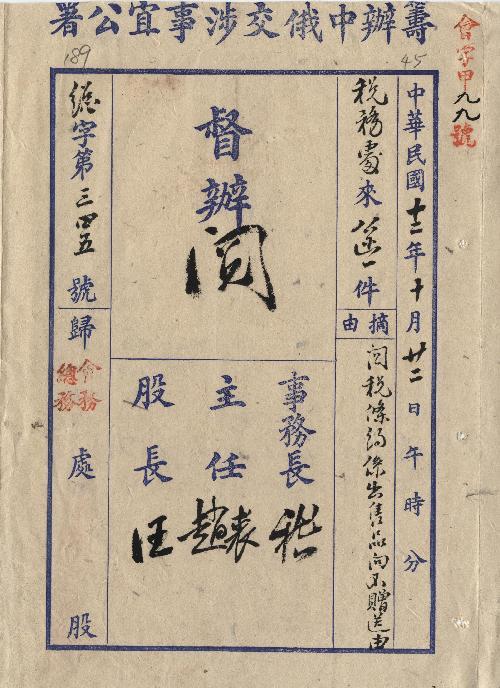 籌辦中俄交涉事宜公署
會字甲九九號
45
189
中華民國十二年十月廿二日午時分
稅務處來函一件
摘由
关税條約係出售品向不贈送由
督辦
閱
事務長
嵇
主任
趙袁
股長
汪
總字第三四五號歸
會務
總務
處
股